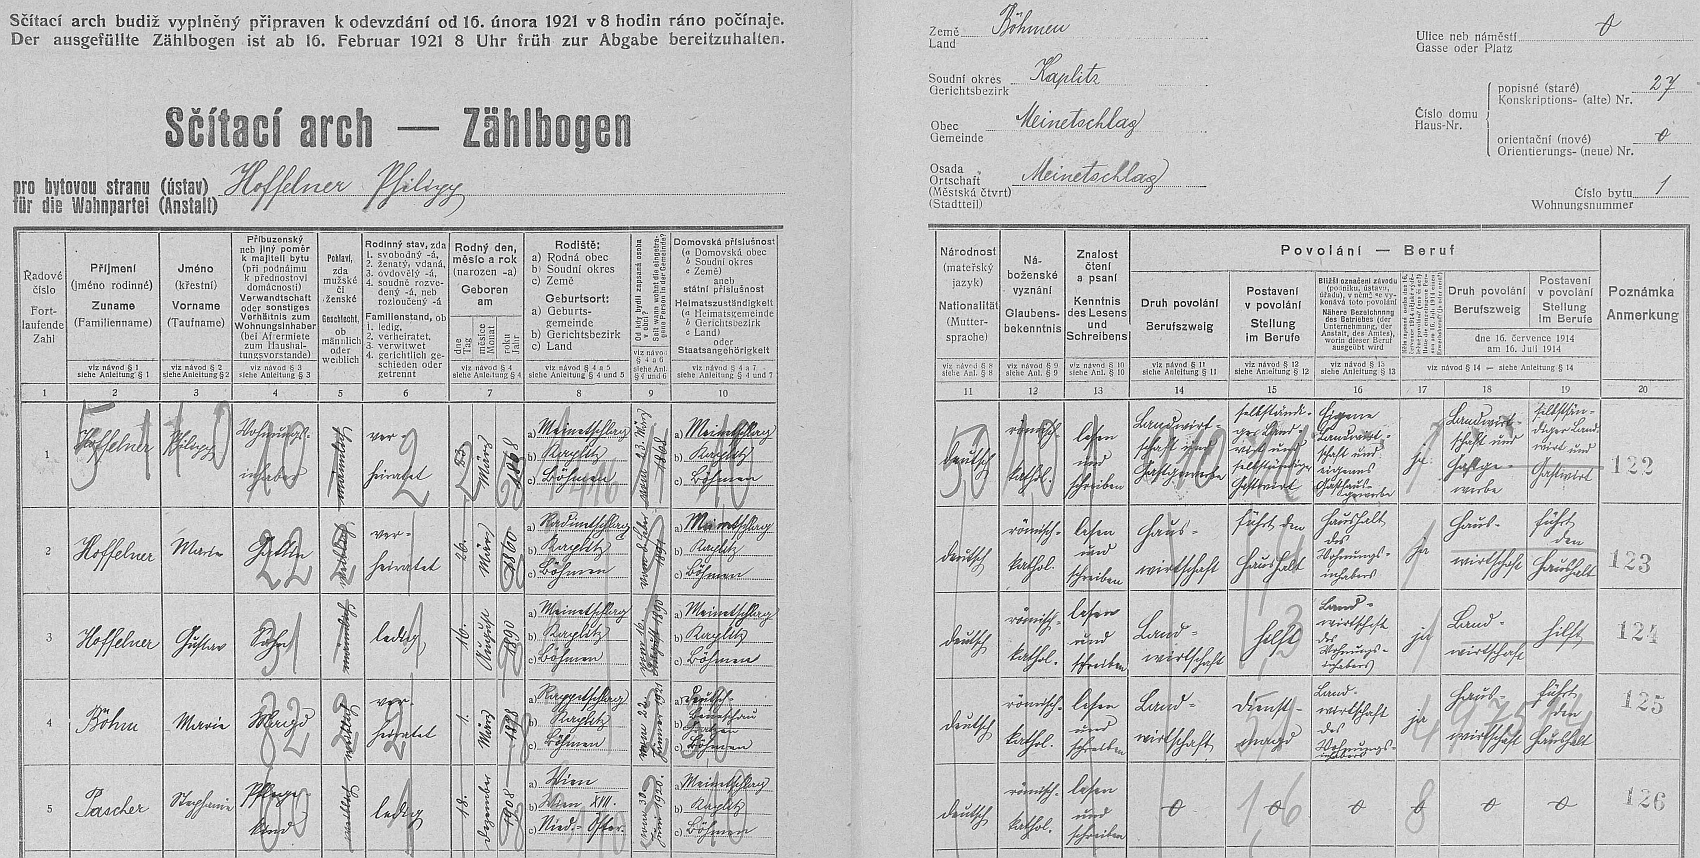 Sčítací arch budiž vyplněný připraven k odevzdání od 16. února 1921 v 8 hodin ráno počínaje.
Der ausgefüllte Zählbogen ist ab 16. Februar 1921 8 Uhr früh zur Abgabe bereitzuhalten.
Sčítací arch — Zählbogen
pro bytovou stranu (ústav) Hoffelner Philipp
für die Wohnpartei (Anstalt)
Země Böhmen
Land
Soudní okres Kaplitz
Gerichtsbezirk
Obec Meinetschlag
Gemeinde
Osada
Ortschaft Meinetschlag
(Městská čtvrť)
(Stadtteil)
Ulice neb náměstí 0
Gasse oder Platz
Číslo domu
Haus-Nr.
popisné (staré) 27
Konskriptions- (alte) Nr.
orientační (nové) 0
Orientierungs- (neue) Nr.
Číslo bytu 1
Wohnungsnummer
Řadové
číslo
Fort-
laufende
Zahl
Příjmení
(jméno rodinné)
Zuname
(Familienname)
viz návod § 1
siehe Anleitung § 1
Jméno
(křestní)
Vorname
(Taufname)
viz návod § 2
siehe Anleitung § 2
Příbuzenský
neb jiný poměr
k majiteli bytu
(při podnájmu
k přednostovi
domácnosti)
Verwandtschaft
oder sonstiges
Verhältnis zum
Wohnungsinhaber
(bei Aftermiete
zum Haushal-
tungsvorstande)
viz návod § 3
siehe Anleitung § 3
Pohlaví,
zda
mužské
či
ženské
Geschlecht,
ob
männlich
oder
weiblich
Rodinný stav, zda
1. svobodný -á,
2. ženatý, vdaná,
3. ovdovělý -á,
4. soudně rozve-
dený -á, neb
rozloučený -á
Familienstand, ob
1. ledig,
2. verheiratet,
3. verwitwet
4. gerichtlich ge-
schieden oder
getrennt
Rodný den,
měsíc a rok
(narozen -a)
Geboren
am
dne
Tag
měsíce
Monat
roku
Jahr
viz návod § 4
siehe Anleitung § 4
Rodiště:
a) Rodná obec
b) Soudní okres
c) Země
Geburtsort:
a) Geburts-
gemeinde
b) Gerichtsbezirk
c) Land
viz návod § 4 a 5
siehe Anleitung § 4 und 5
Od kdy bydlí zapsaná osoba
v obci?
Seit wann wohnt die eingetra-
gene Person in der Gemeinde?
viz návod
§ 4 a 6
siehe Anl.
§ 4 und 6
Domovská příslušnost
(a Domovská obec
b Soudní okres
c Země)
aneb
státní příslušnost
Heimatszuständigkeit
(a Heimatsgemeinde
b Gerichtsbezirk
c Land)
oder
Staatsangehörigkeit
viz návod § 4 a 7
siehe Anleitung § 4 und 7
Národnost
(mateřský
jazyk)
Nationalität
(Mutter-
sprache)
viz návod § 8
siehe Anl. § 8
Ná-
boženské
vyznání
Glaubens-
bekenntnis
viz návod § 9
siehe Anl. § 9
Znalost
čtení
a psaní
Kenntnis
des Lesens
und
Schreibens
viz návod § 10
siehe Anl. § 10
Povolání — Beruf
Druh povolání
Berufszweig
viz návod § 11
siehe Anleitung § 11
Postavení
v povolání
Stellung
im Berufe
viz návod § 12
siehe Anleitung § 12
Bližší označení závodu
(podniku, ústavu,
úřadu), v němž se vy-
konává toto povolání
Nähere Bezeichnung
des Betriebes (der
Unternehmung, der
Anstalt, des Amtes),
worin dieser Beruf
ausgeübt wird
viz návod § 13
siehe Anleitung § 13
Druh povolání
Berufszweig
Postavení
v povolání
Stellung
im Berufe
dne 16. července 1914
am 16. Juli 1914
viz návod § 14 — siehe Anleitung § 14
Poznámka
Anmerkung
1 2 3 4 5 6 7 8 9 10 11 12 13 14 15 16 17 18 19 20
1 Hoffelner Philipp Wohnungs-
inhaber männlich ver-
heiratet 23. März 1868
a) Meinetschlag
b) Kaplitz
c) Böhmen
vom 23. März 1868
a) Meinetschlag
b) Kaplitz
c) Böhmen
deutsch römisch-
kathol. lesen
und
schreiben
Landwirt-
schaft und
Gastgewerbe
selbständi-
ger Land-
wirt und
selbständiger
Gastwirt
Eigene
Landwirt-
schaft und
eigenes
Gasthaus-
gewerbe
ja
Landwirt-
schaft und
Gastge-
werbe
selbstän-
diger Land-
wirt und
Gastwirt
122
2 Hoffelner Marie Gattin weiblich ver-
heiratet 26. März 1860
a) Radinetschlag
b) Kaplitz
c) Böhmen
1891
a) Meinetschlag
b) Kaplitz
c) Böhmen
deutsch römisch-
kathol. lesen
und
schreiben
Haus-
wirtschaft
führt den
Haushalt
Haushalt
des
Wohnungs-
inhabers
ja
Haus-
wirtschaft
führt
den
Haushalt
123
3 Hoffelner Gustav Sohn männlich ledig 16. August 1890
a) Meinetschlag
b) Kaplitz
c) Böhmen
vom 16. August 1890
a) Meinetschlag
b) Kaplitz
c) Böhmen
deutsch römisch-
kathol. lesen
und
schreiben
Land-
wirtschaft
hilft
Land-
wirtschaft
des
Wohnungs-
inhabers
ja
Land-
wirtschaft
hilft
124
4 Böhm Marie Magd weiblich ver-
heiratet 1. März 1878
a) Rappetschlag
b) Kaplitz
c) Böhmen
vom 22. Jänner 1921
a) Deutsch-
Beneschau
b) Gratzen
c) Böhmen
deutsch römisch-
kathol. lesen
und
schreiben
Land-
wirtschaft
Dienst-
magd
Land-
wirtschaft
des
Wohnungs-
inhabers
ja
Haus-
wirtschaft
führt
den
Haushalt
125
5 Pascher Stephanie Pflege-
kind weiblich ledig 18. Dezember 1908
a) Wien
b) Wien XIII.
c) Nied.-Öster.
vom 30. Juni 1920.
a) Meinetschlag
b) Kaplitz
c) Böhmen
deutsch römisch-
kathol. lesen
und
schreiben
0 0 0 0 0 0
126